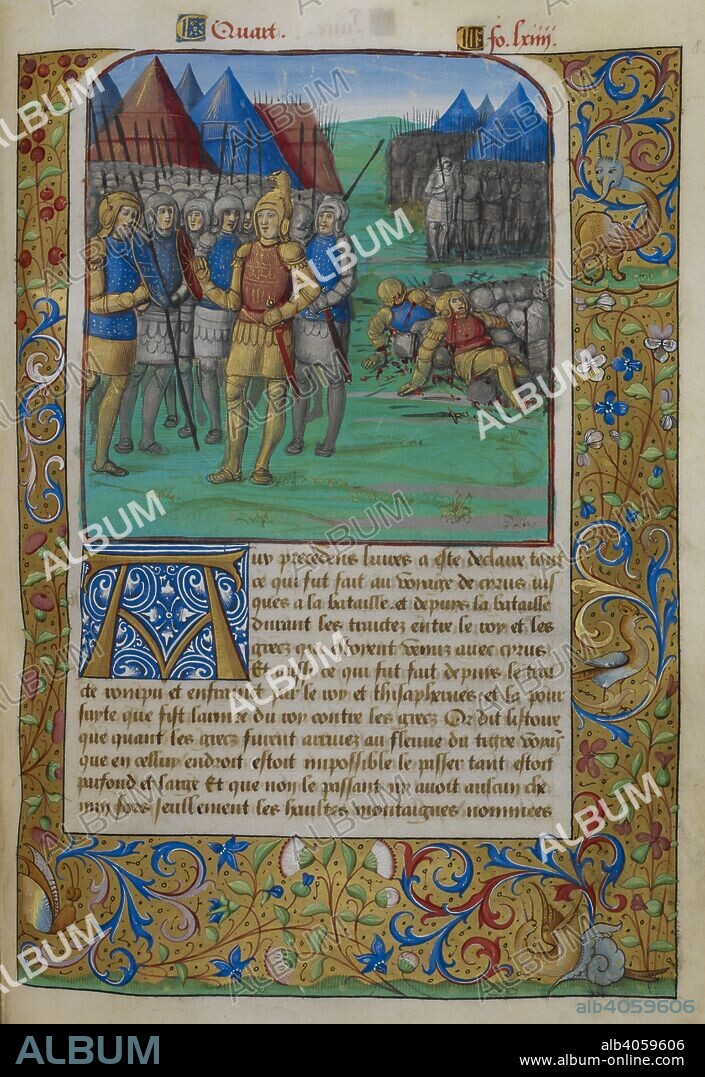 Quart.
fo. lxiiii.
Auy precedens liures a este declaire tout
ce qui fut fait au voyage de cyrus iuſ
ques a la bataille et depuys la bataille
durant les traictez entre le roy et les
grecz qui estoyent venuz auec cyrus
Et auſſi ce qui fut fait depuis le trai
cte rompu et enfraint par le roy et thiſaphernes et la pour
ſuyte que fiſt larmee du roy contre les grecz Or dit liſtoire
que quant les grecz furent arriuez au fleuue du tigre voyās
que en celluy endroit eſtoit impoſſible le paſſer tant eſtoit
profond et large Et que non le paſſant ny auoit aulcun che
min fors ſeullement les haultes montaignes nommees
ALBUM
alb4059606
ALBUM
alb4059606
www.album-online.com